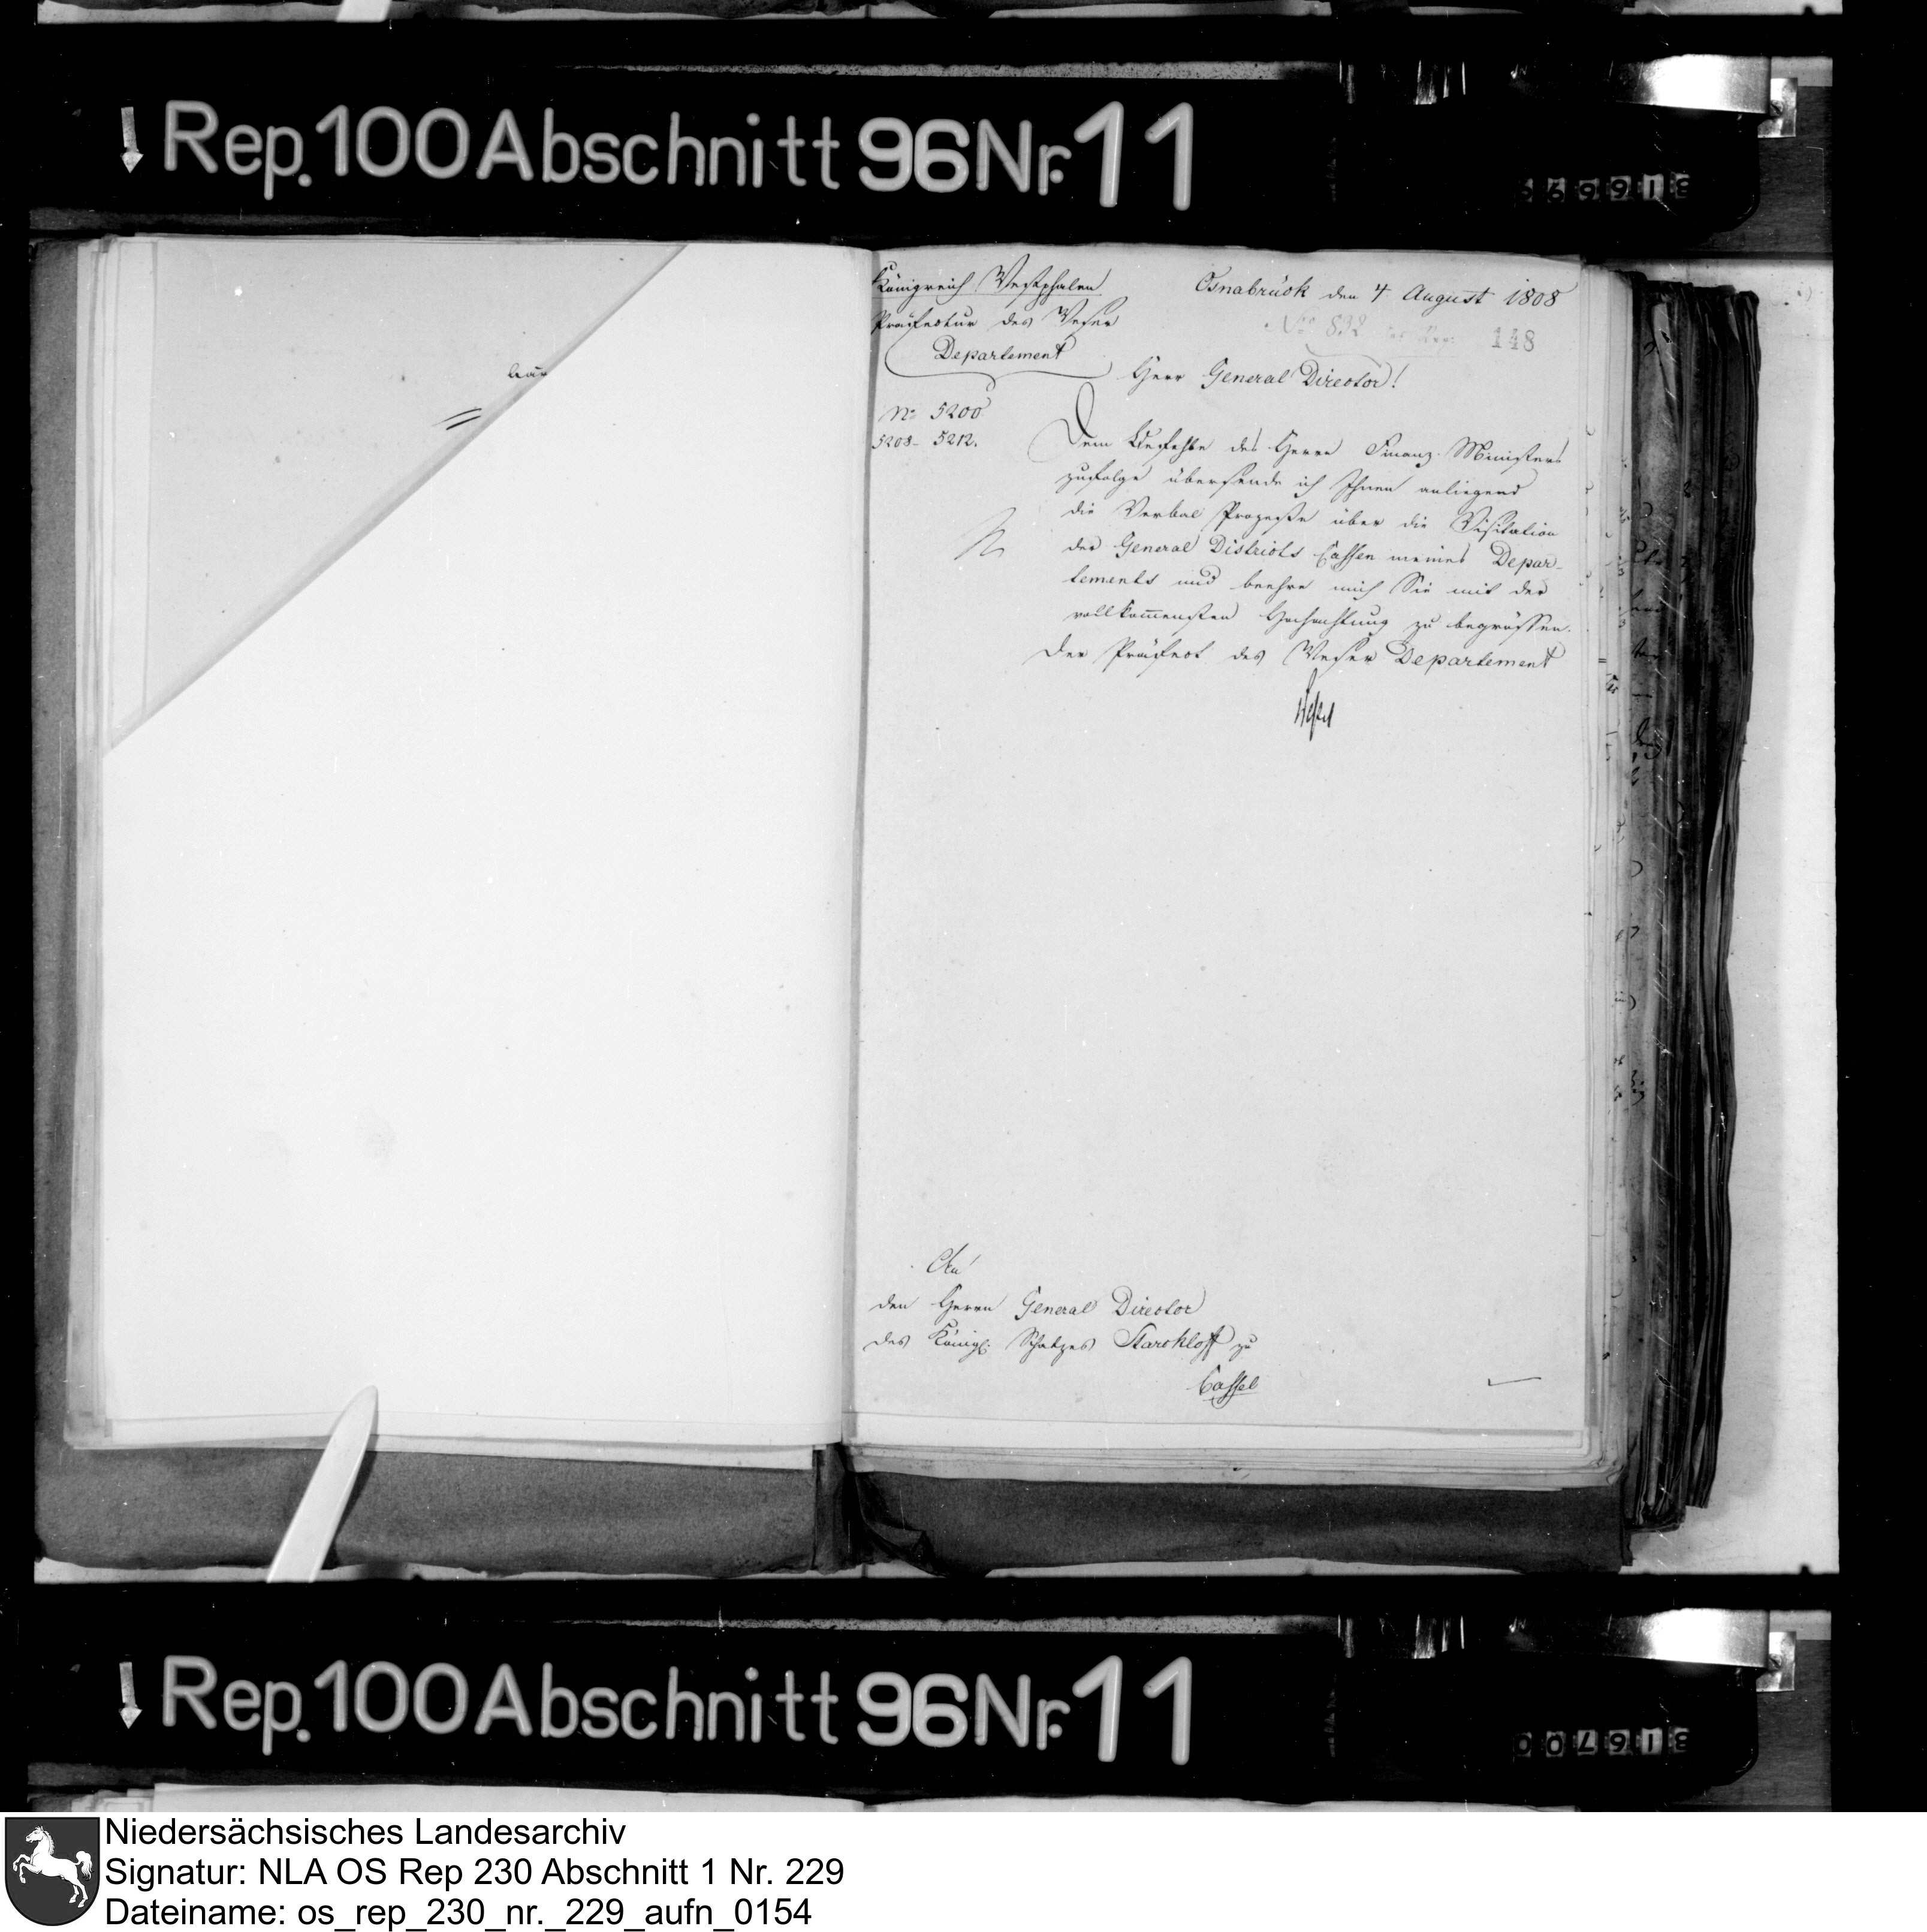 Rep. 100 Abschnitt 96 Nr. 11
Königreich Westphalen
Osnabrück den 4 August 1808
Präfectur des Weser
No 832
148
Departement
Herr General Director!
No 5200
5208 - 5212.
Dem Befehle des Herrn Finanz-Ministers
zufolge übersende ich Ihnen anliegend
die Verbal Prozeße über die Visitation
der General Districts Cassen meines Depar-
tements und beehre mich Sie mit der
vollkom̄ensten Hochachtung zu begrüssen.
Der Präfect des Weser Departement
An
den Herrn General Director
des Königl. Schatzes Starckloff zu
Cassel
Rep. 100 Abschnitt 96 Nr. 11
Niedersächsisches Landesarchiv
Signatur: NLA OS Rep 230 Abschnitt 1 Nr. 229
Dateiname: os_rep_230_nr._229_aufn_0154